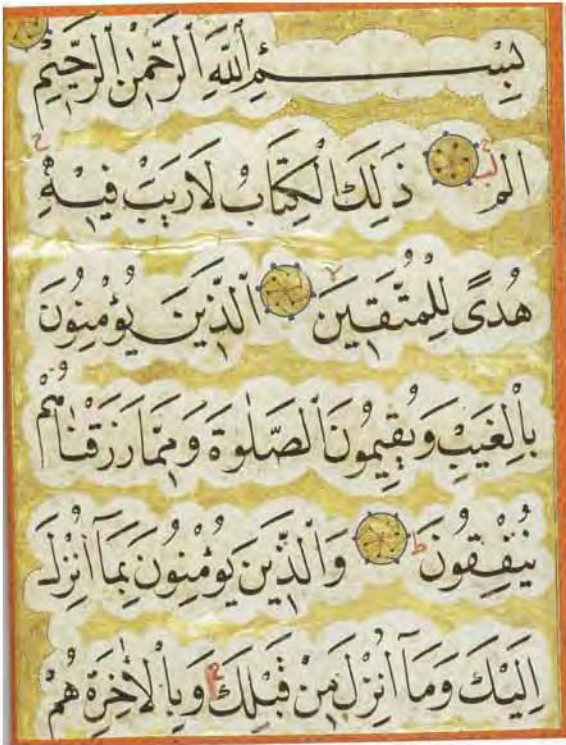 بِسْمِ ٱللَّهِ ٱلرَّحْمٰنِ ٱلرَّحِيمِ
الم ذَلِكَ الْكِتَابُ لَا رَيْبَ فِيهِ
هُدًى لِلْمُتَّقِينَ ٱلَّذِينَ يُؤْمِنُونَ
بِالْغَيْبِ وَيُقِيمُونَ ٱلصَّلٰوةَ وَمِمَّا رَزَقْنَاهُمْ
يُنْفِقُونَ وَالَّذِينَ يُؤْمِنُونَ بِمَآ اُنْزِلَ
اِلَيْكَ وَمَآ اُنْزِلَ مِنْ قَبْلِكَ وَبِالْاٰخِرَةِ هُمْ